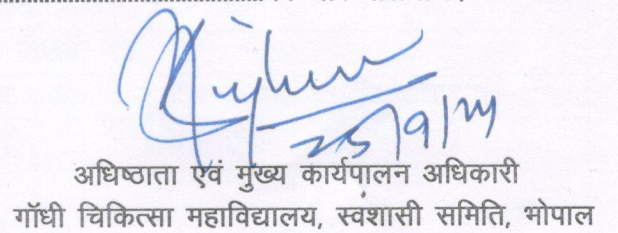 25/9/24
अधिष्ठाता एवं मुख्य कार्यपालन अधिकारी
गॉधी चिकित्सा महाविद्यालय, स्वशासी समिति, भोपाल